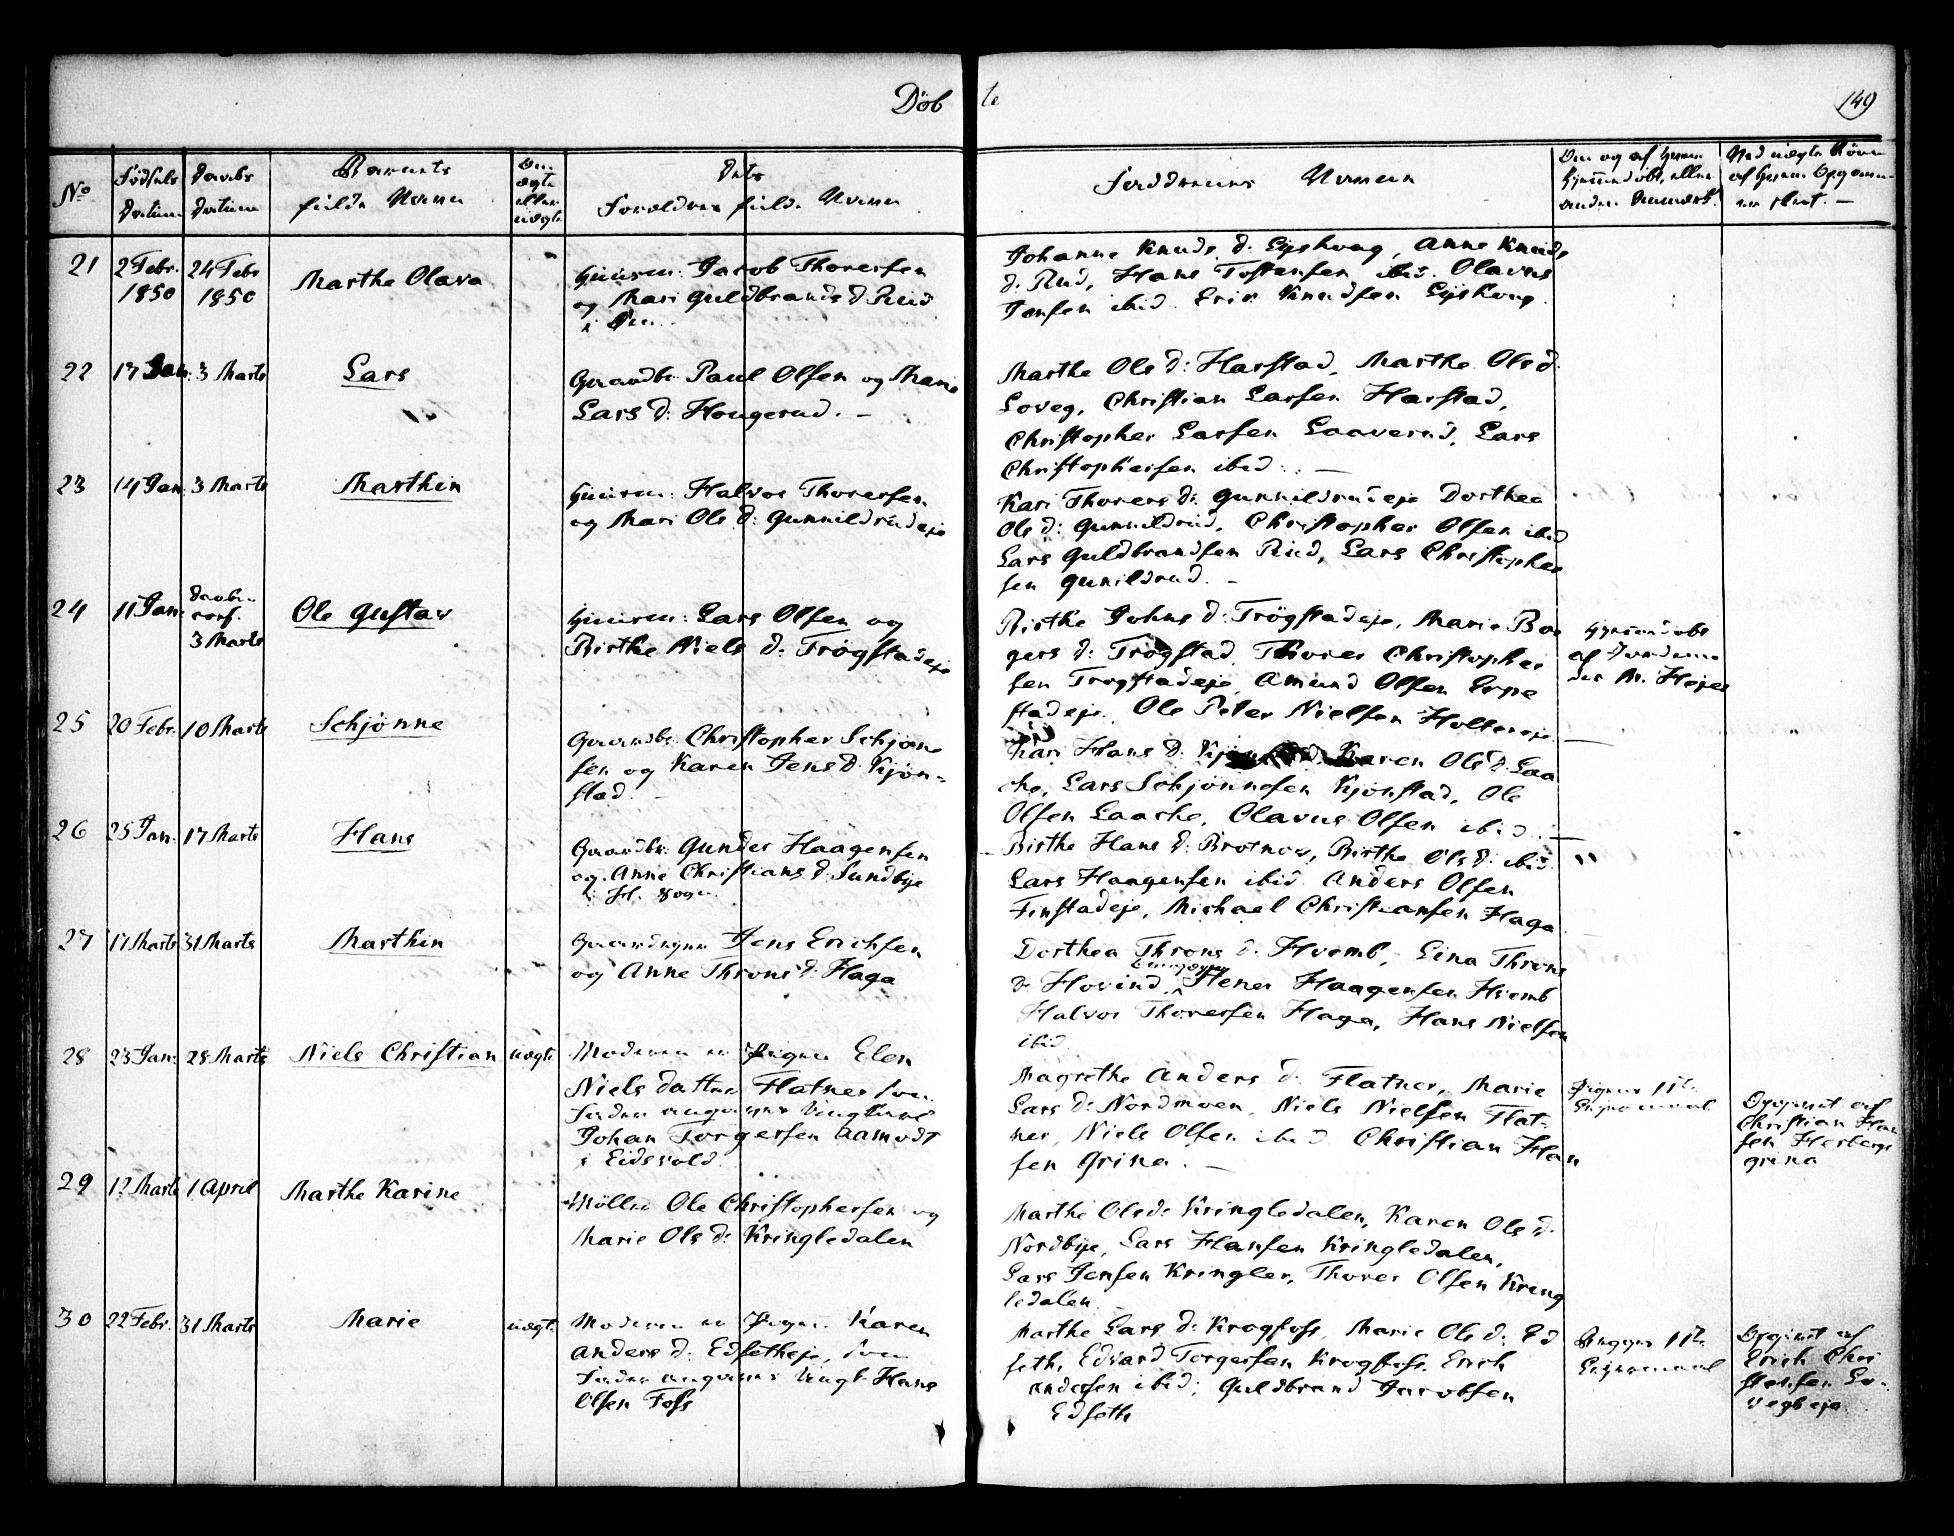 Döbte
149
No
Fødsels
Datum
Daabs
Datum
Barnets
fulde Navn
Om
ægte
eller
uægte
Dets
Forældres fulde Navne
Faddernes Navne
21
2 Febr.
1850
24 Febr
1850
Marthe Olava
Huusm: Jacob Thoresen
og Mari Guldbrands d. Ruud
Johanne Knuds d. Anne Knuds
d. Rud, Hans Tostensen ibid. Olavus
Jensen ibid. Erik Knudsen
22
17 Jan: 3 Marts
Lars
Gaardbr: Paul Olsen og Marie
Lars d: Hougerud. -
Marthe Ols d: Harstad, Marthe Ols d.
Loveg, Christian Larsen Harstad,
Christopher Larsen Laaverud, Lars
Christophersen ibid. -
23
14 Jan 3 Marts
Marthin
Huusm: Halvor Thoresen
og Mari Ols d: Gunnildrudeje
Kari Thorers d: Gunnildrudeje Dorthea
Ols d: Gunnildrud, Christopher Olsen ibid
Lars Guldbrandsen Rud, Lars Christopher
sen Gunildrud. -
24
11 Jan:
Daabs
conf.
3 Marts
Ole Gustav
Huusm: Lars Olsen og
Birthe Niels d: Trögstadeje
Birthe Johns d: Trögstadeje, Marie Bor
gers d: Trögstad, Thorer Christopher
sen Trögstadeje, Amund Olsen Erpe
stadeje. Ole Peter Nielsen Holtereje.
Hjemmedøbt
af Jordemo
der M. Højer
25
20 Febr. 10 Marts
Schjønne
Gaardbr: Christopher Schjøn
sen og Karen Jens d. Kjøn=
stad. -
Kari Hans d. Karen Ols d. Laa
che, Lars Schjønnesen Kjønstad, Ole
Olsen Laache, Olavus Olsen ibid. -
26
25 Jan. 17 Marts
Hans
Gaardbr: Gunder Haagensen
og Anne Christians d. Sundbye
Birthe Hans d: Brotnov, Birthe Ols d: ibid
Lars Haagensen ibid. Anders Olsen
Finstadeje, Michael Christiansen Haga
27
17 Marts 31 Marts
Marthin
Jens Erichsen
og Anne Throns d. Haga
Dorthea Throns d. Hvamb, Lina Throns
d. Hovind, Haagensen Hvamb
Halvor Thoresen Haga, Hans Nielsen
ibid.
28
23 Jan: 28 Marts
Niels Christian
uægte
Moderen er Pigen Elen
Niels datter Flatner som
Fader angives Ungkarl
Johan Torgersen Aamodt
i Eidsvold.
Magrethe Anders d. Flatner, Marie
Lars d: Nordmoen, Niels Nielsen Flat-
ner, Niels Olsen ibid. Christian Han
sen Grina. -
Pigens 1ste
Leiermaal
Opgivet af
Christian Han
sen Herberg
grina
29
12 Marts 1 April
Marthe Karine
Møller Ole Christophersen og
Marie Ols d: Kringledalen
Marthe Ols d: Kringledalen, Karen Ols d.
Nordbye, Lars Hansen Kringledalen,
Lars Jensen Kringler, Thorer Olsen Kring
ledalen.
30
22 Febr. 31 Marts
Marie
uægte
Moderen er Pigen Karen
Anders d. Edsetheje, som
Fader angives Ungk. Hans
Olsen Foss
Marthe Lars d: Krogfoss, Marie Ols d: Ed
seth, Edvard Torgersen Krogfoss. Erich
Andersen ibid; Guldbrand Jacobsen
Edseth
Pigens 1ste
Leiermaal
Opgivet af
Erich Chri
stensen Lo-
vegseje.